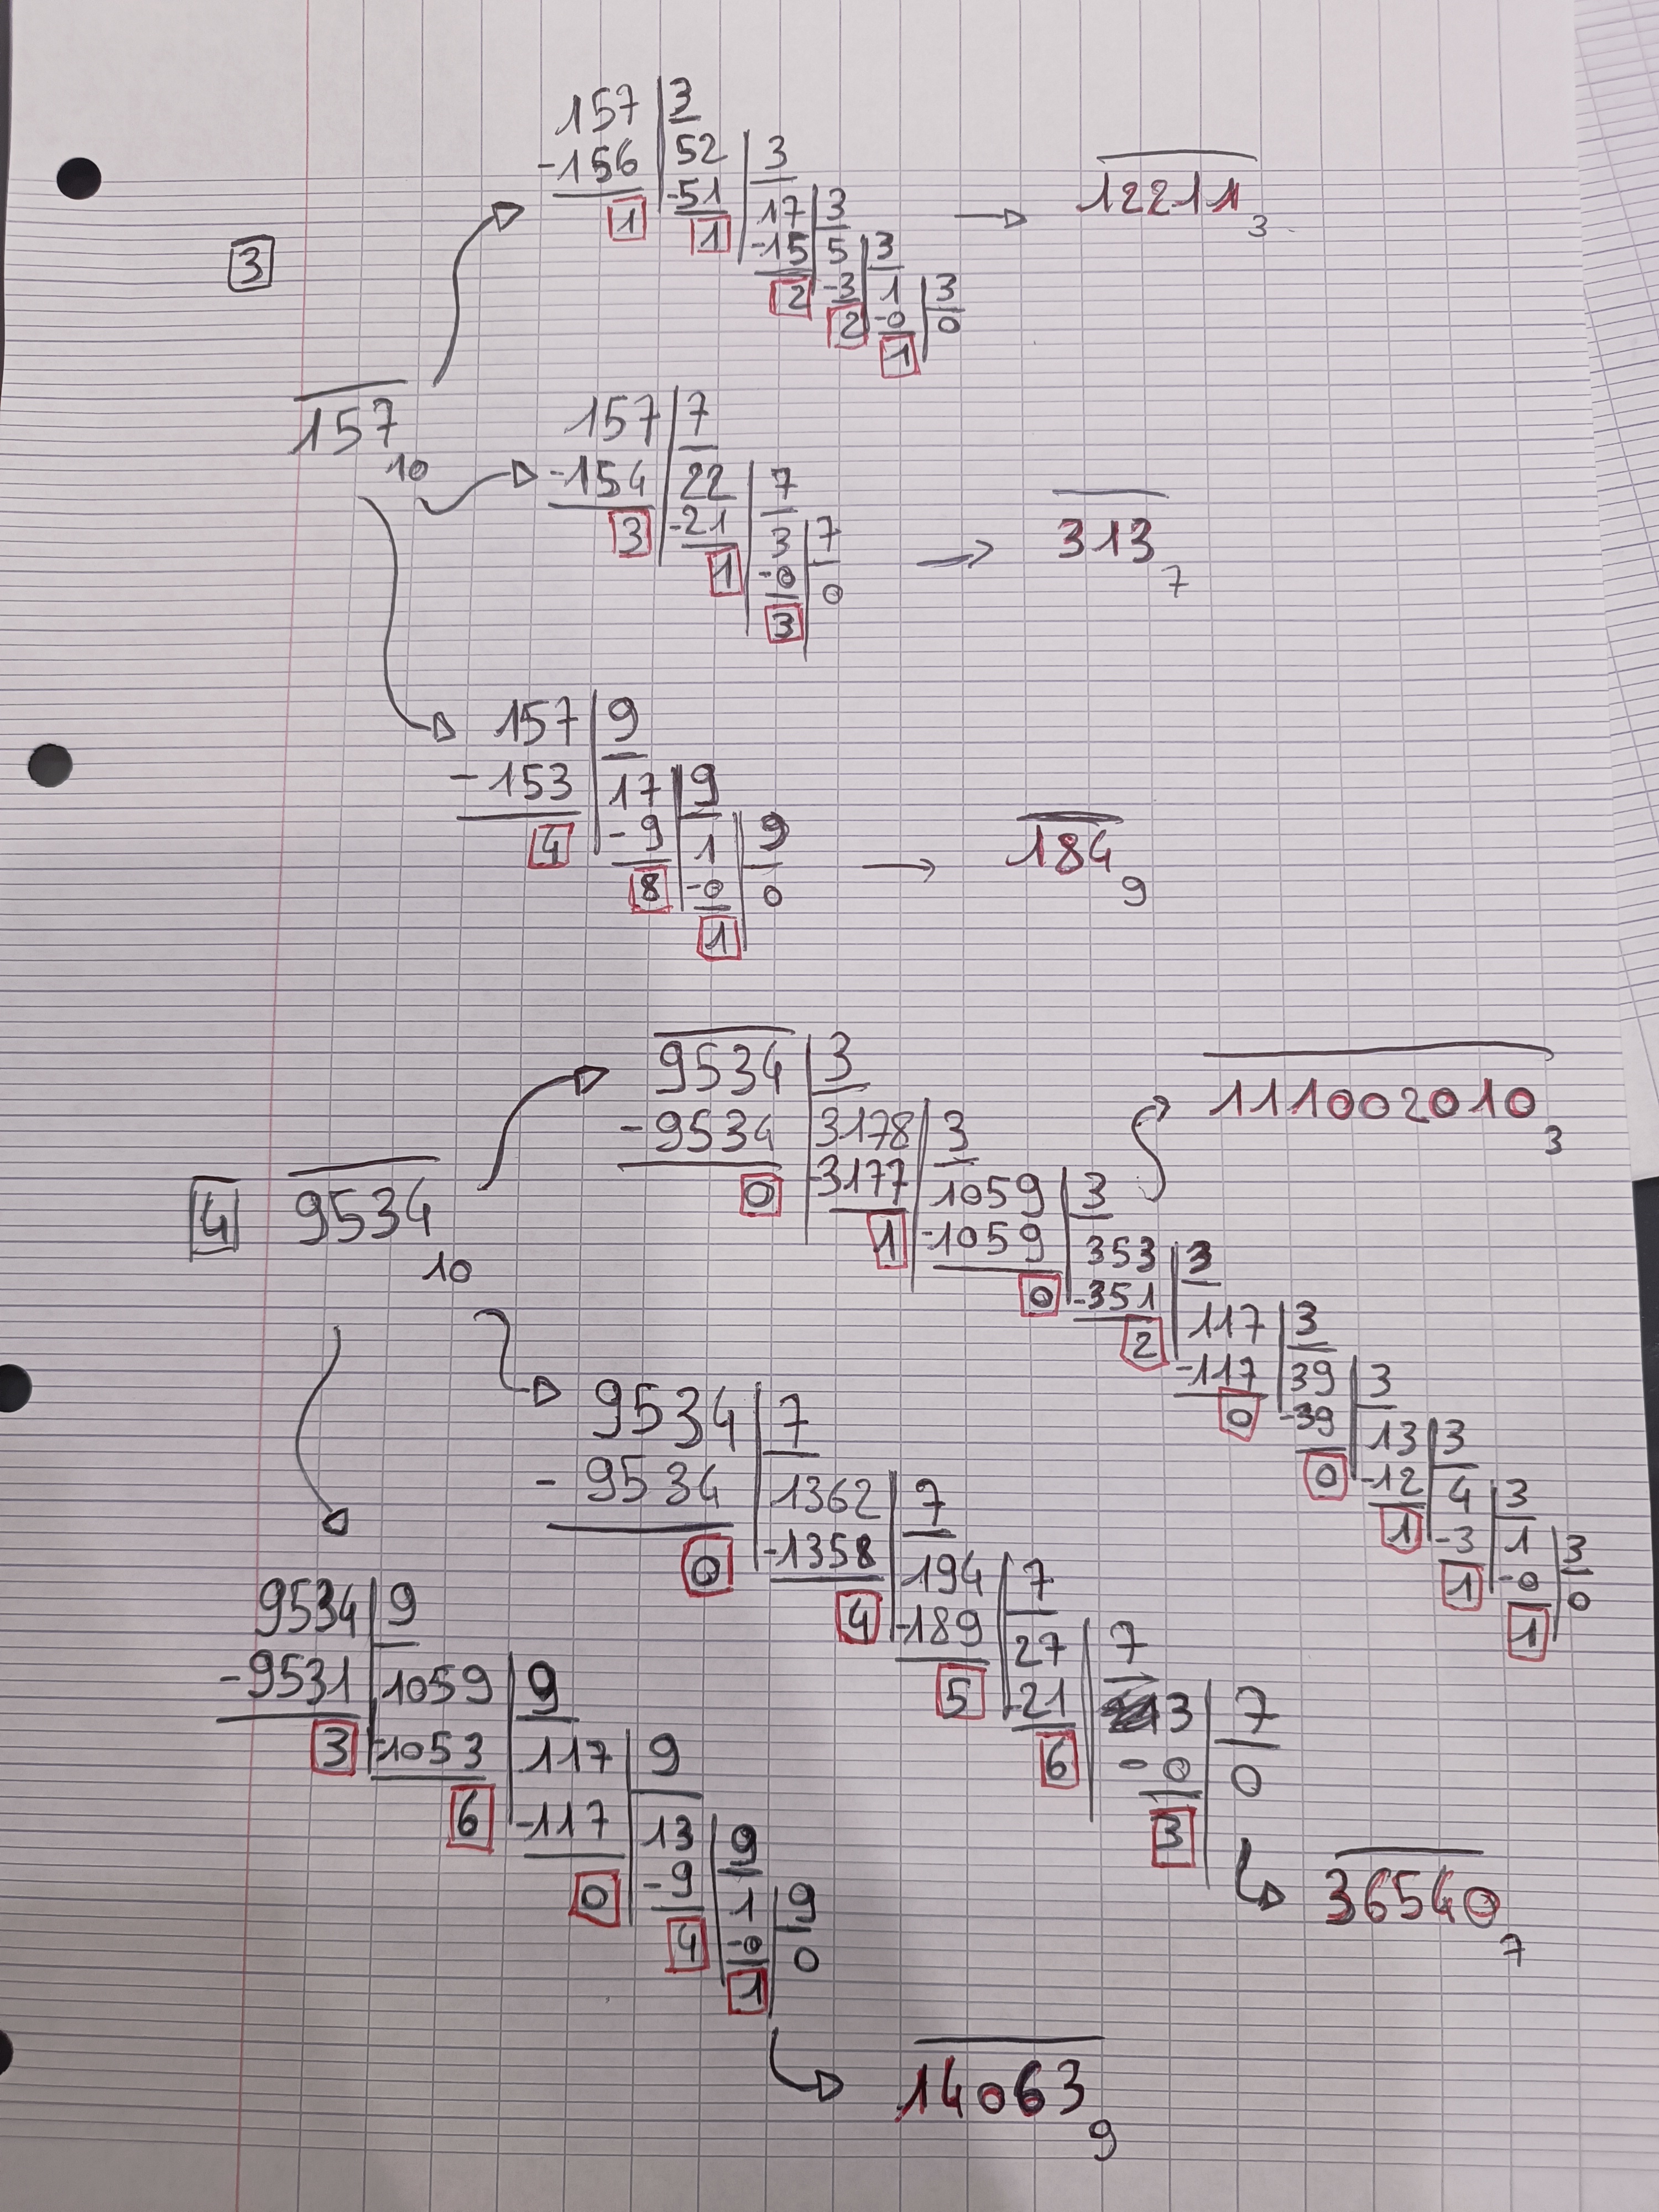 3
157 | 3
-156 | 52 | 3
1 | -51 | 17 | 3
1 | -15 | 5 | 3
2 | -3 | 1 | 3
2 | -0 | 0
1
→ 12211 3
157 10
157 | 7
-154 | 22 | 7
3 | -21 | 3 | 7
1 | -0 | 0
3
→ 313 7
157 | 9
-153 | 17 | 9
4 | -9 | 1 | 9
8 | -0 | 0
1
→ 184 9
4
9534 10
9534 | 3
-9534 | 3178 | 3
0 | -3177 | 1059 | 3
1 | -1059 | 353 | 3
0 | -351 | 117 | 3
2 | -117 | 39 | 3
0 | -39 | 13 | 3
0 | -12 | 4 | 3
1 | -3 | 1 | 3
1 | -0 | 0
1
111002010 3
9534 | 7
-9534 | 1362 | 7
0 | -1358 | 194 | 7
4 | -189 | 27 | 7
5 | -21 | 3 | 7
6 | -0 | 0
3
36540 7
9534 | 9
-9531 | 1059 | 9
3 | -1053 | 117 | 9
6 | -117 | 13 | 9
0 | -9 | 1 | 9
4 | -0 | 0
1
14063 9